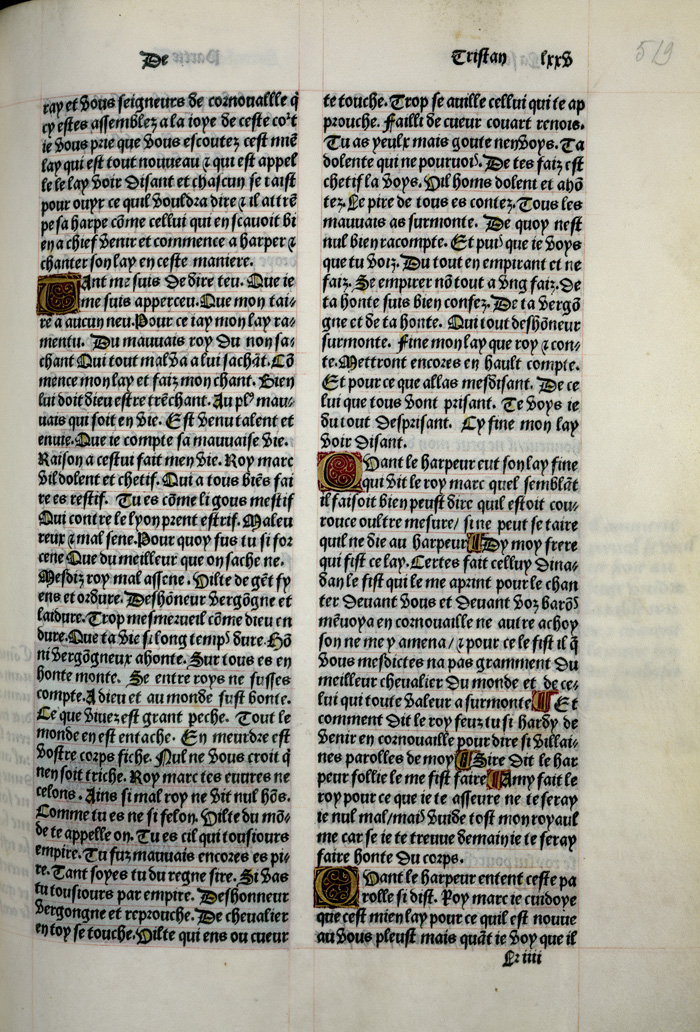 De
Tristan lxxv
519
ray et vous seigneurs de cornouallle q̃
cy estes assemblez a la ioye de ceste co't
ie vous prie que vous escoutez cest miē
lay qui est tout nouueau ⁊ qui est appel
le le lay voir disant et chascun se taist
pour ouyr ce quil vouldra dire ⁊ il attrē
pe sa harpe cōme cellui qui en scauoit bi
en a chief venir et commence a harper ⁊
chanter son lay en ceste maniere.
Tant me suis de dire teu. Que ie
me suis apperceu. Que mon tai⸗
re a aucun neu. Pour ce iay mon lay ra⸗
mentu. Du mauuais roy du non sa⸗
chant Qui tout mal va a lui sachāt. Cō
mence mon lay et faiz mon chant. Bien
lui doit dieu estre trēchant. Au pl⁹ mau⸗
uais qui soit en vie. Est venu talent et
enuie. Que ie compte sa mauuaise vie.
Raison a cestui fait men vie. Roy marc
vil dolent et chetif. Qui a tous biēs fai
re es restif. Tu es cōme li gous mestif
Qui contre le lyon prent estrif. Maleu
reux ⁊ mal sene. Pour quoy fus tu si for
cene Que du meilleur que on sache ne.
Mesdiz roy mal assene. Vilte de gēt fy
ens et ordure. Deshōneur vergōgne et
laidure. Trop mesmerueil cōme dieu en
dure. Que ta vie si long temp⁹ dure. Hō
ni vergōgneux ahonte. Sur tous es en
honte monte. Se entre roys ne fusses
compte. A dieu et au monde fust honte.
Ce que viuez est grant peche. Tout le
monde en est entache. En meurdre est
vostre corps fiche. Nul ne vous croit q̃
nen soit triche. Roy marc tes euures ne
celons. Ains si mal roy ne vit nul hōs.
Comme tu es ne si felon. Vilte du mō⸗
de te appelle on. Tu es cil qui tousiours
empire. Tu fuz mauuais encores es pi⸗
re. Tant soyes tu du regne sire. Si vas
tu tousiours par empire. Deshonneur
vergongne et reprouche. De cheualier
en toy se touche. Vilte qui ens ou cueur
te touche. Trop se auille cellui qui te ap
prouche. Failli de cueur couart renois.
Tu as yeulx mais goute nen voys. Ta
dolente qui ne pouruoi⁹. De tes faiz est
chetif la voys. Vil homs dolent et ahō
tez. Le pire de tous es contez. Tous les
mauuais as surmonte. De quoy nest
nul bien racompte. Et pui⁹ que ie voys
que tu voiz. Du tout en empirant et ne
faiz. Se empirer nō tout a vng faiz. De
ta honte suis bien confez. De ta vergō
gne et de ta honte. Qui tout deshōneur
surmonte. Fine mon lay que roy ⁊ con⸗
te. Mettront encores en hault compte.
Et pour ce que allas mesdisant. De ce
lui que tous vont prisant. Te voys ie
du tout desprisant. Cy fine mon lay
voir disant.
Quant le harpeur eut son lay fine
qui vit le roy marc quel semblāt
il faisoit bien peust dire quil estoit cou⸗
rouce oultre mesure/ si ne peut se taire
quil ne die au harpeur ¶ Dy moy frere
qui fist ce lay. Certes fait celluy dina⸗
dan le fist qui le me aprint pour le chan
ter deuant vous et deuant voz barōs
mēuoya en cornouaille ne autre achoy
son ne me y amena/ ⁊ pour ce le fist il q̃
vous mesdictes na pas gramment du
meilleur cheualier du monde et de ce⸗
lui qui toute valeur a surmonte ¶ Et
comment dit le roy feuz tu si hardy de
venir en cornouaille pour dire si villai⸗
nes parolles de moy ¶ Sire dit le har
peur follie le me fist faire ¶ Amy fait le
roy pour ce que ie te asseure ne te feray
ie nul mal/mai⁹ vuide tost mon royaul
me car se ie te treuue demain ie te feray
faire honte du corps.
Quant le harpeur entent ceste pa
rolle si dist. Roy marc ie cuidoye
que cest mien lay pour ce quil est nouue
au vous pleust mais quāt ie voy que il
Rr iiii